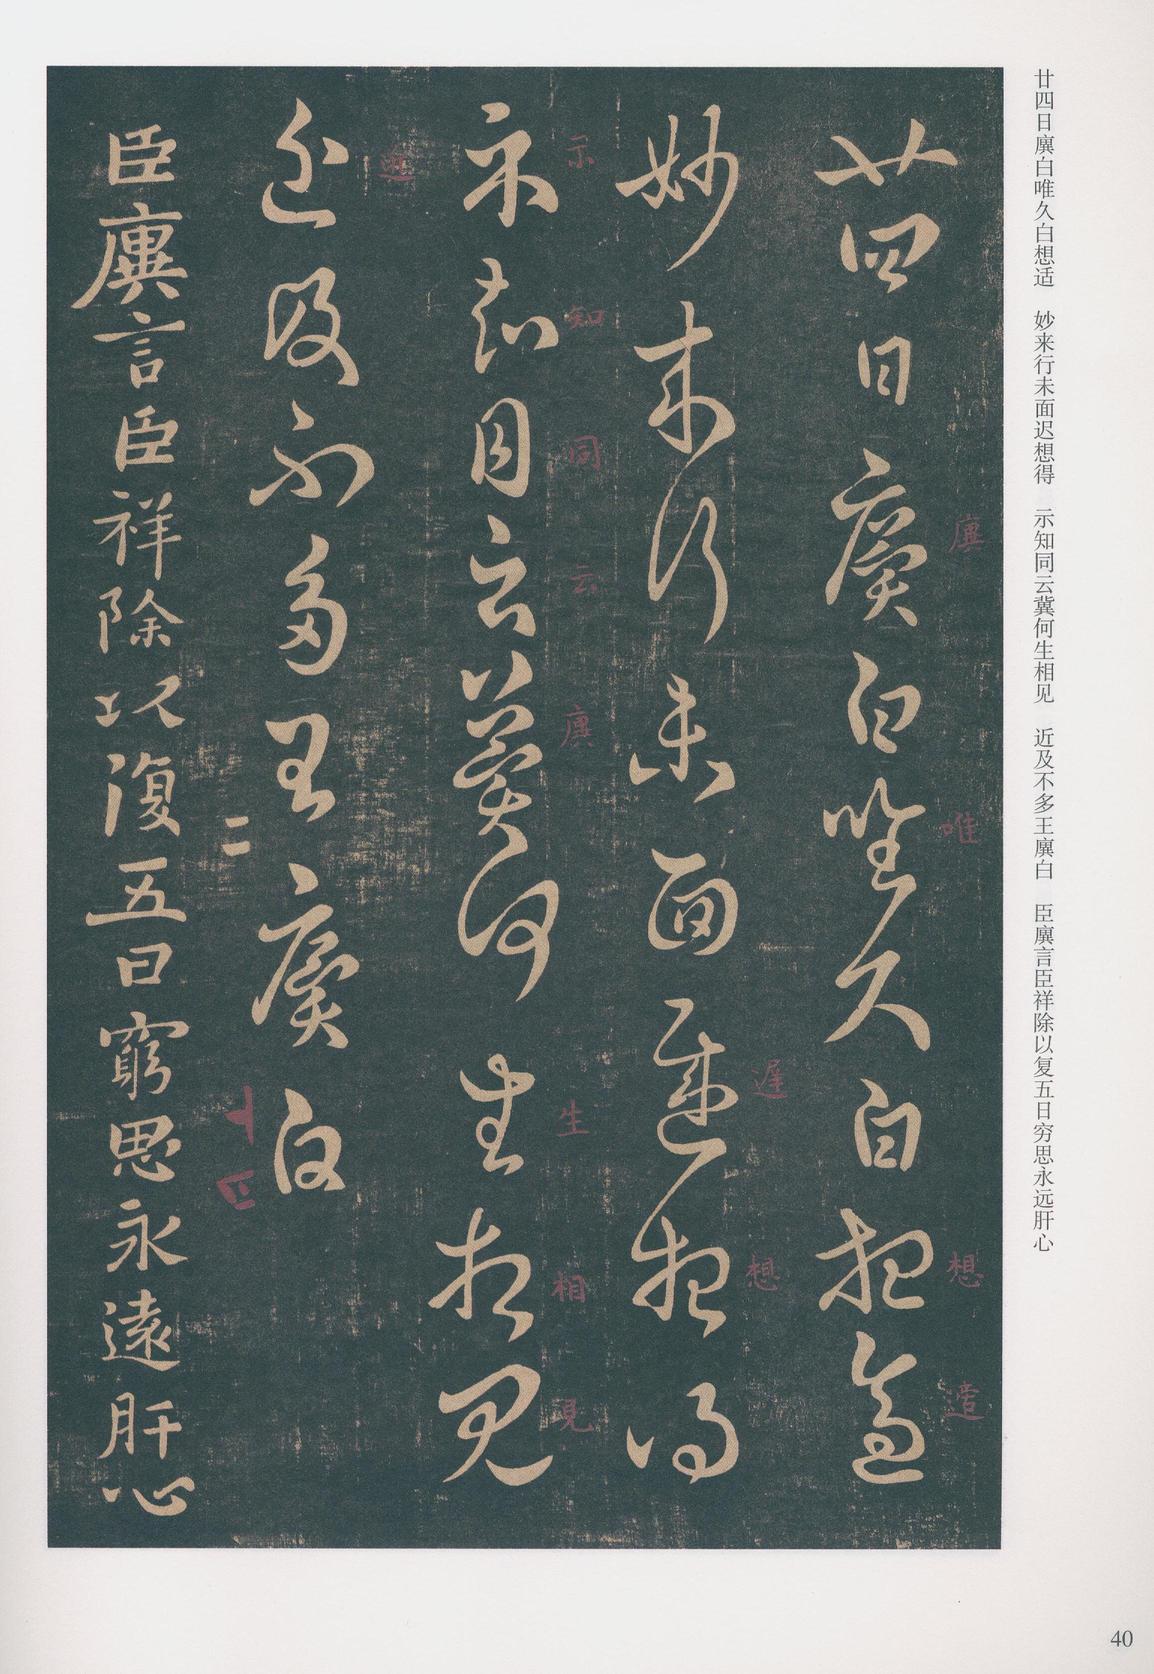 廿四日廙白唯久白想适　妙来行未面迟想得　示知同云冀何生相见　近及不多王廙白　臣廙言臣祥除以复五日穷思永远肝心
廿四日廙白唯久白想適
廙
唯
想
適
妙来行未面遲想得
遲
想
示知同云冀何生相見
示
知
同
云
廙
生
相
見
近及不多王廙白
近
二
十四
臣廙言臣祥除以復五日窮思永遠肝心
40